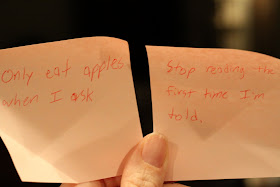 Only eat apples
when I ask
Stop reading the
first time I'm
told.